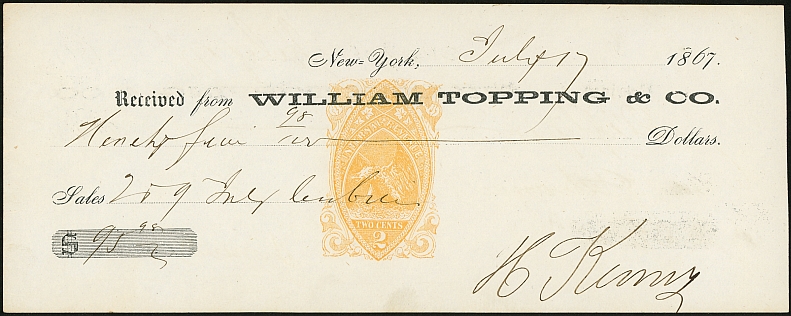 New-York, July 17 1867.
Received from WILLIAM TOPPING & CO.
Ninety five 98/100 Dollars.
Sales 2 & 9 July
$ 95 98
TWO CENTS
2
H Kenny